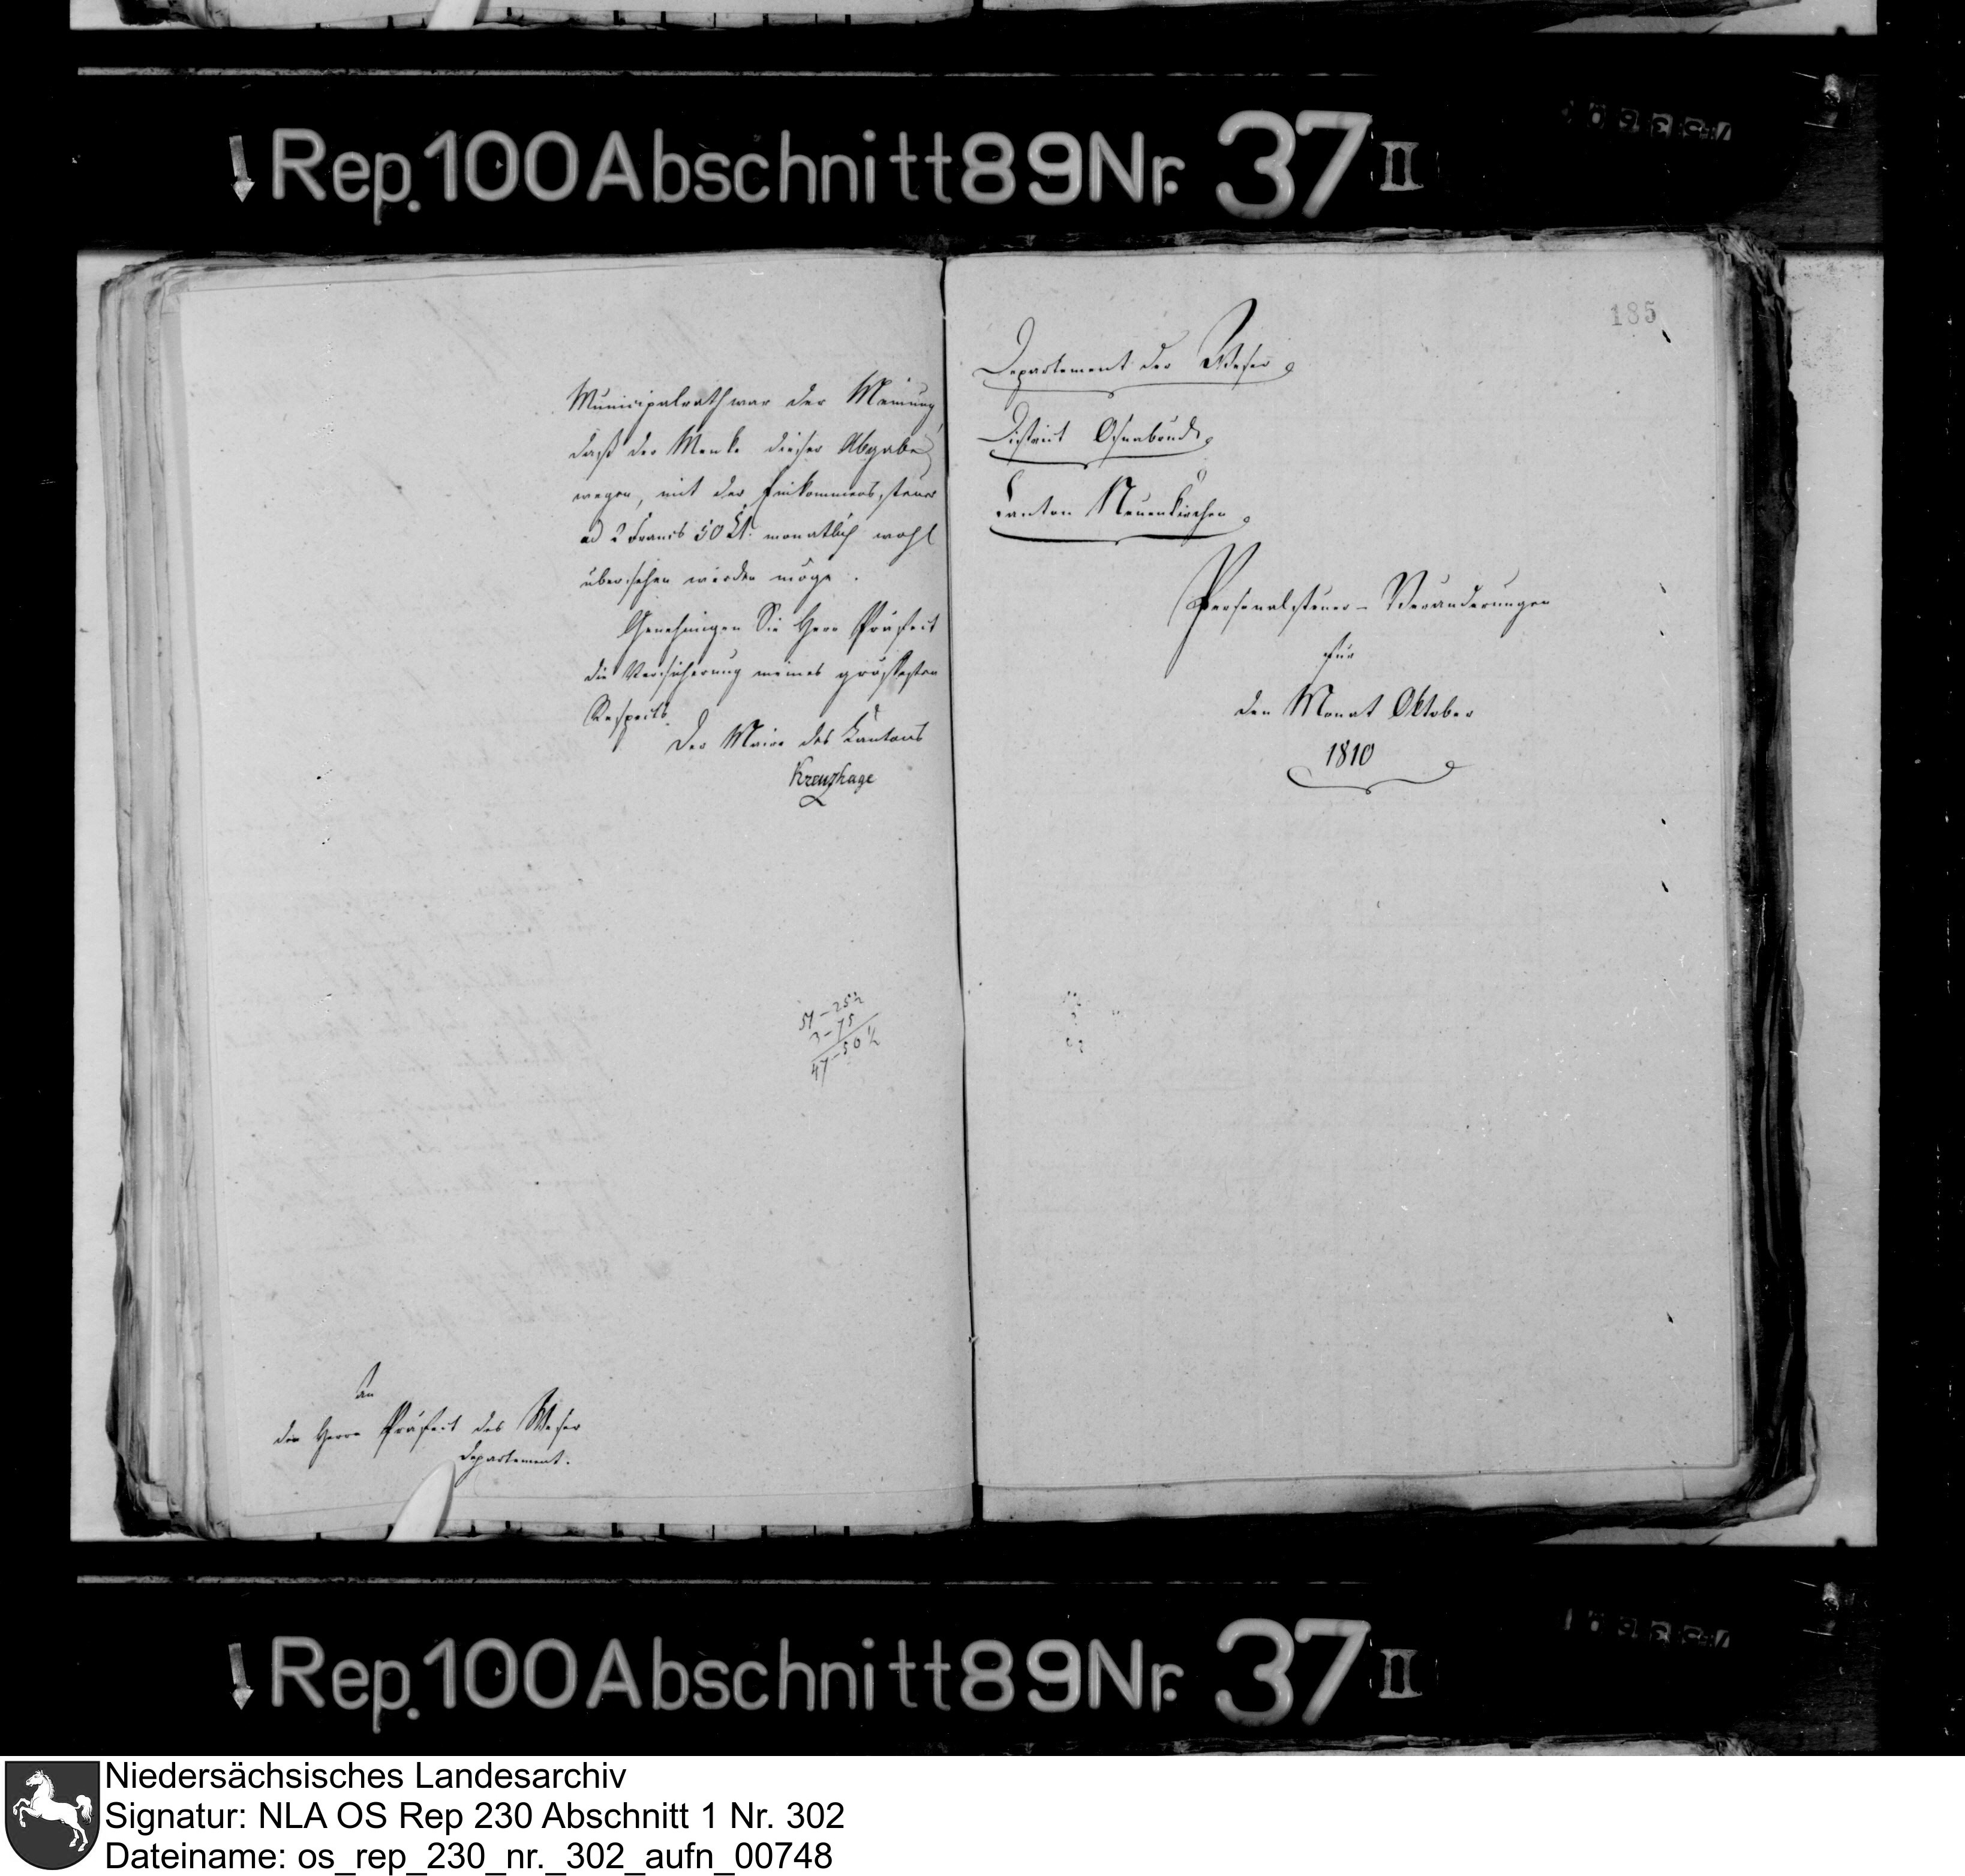 ↓ Rep. 100 Abschnitt 89 Nr. 37 II
Municipalrath war der Meinung
daß der Menke dieser Abgabe
wegen, mit der Einkommens steuer
ad 2 Francs 50 Ct. monatlich wohl
übersehen werden möge.
Genehmigen Sie Herr Präfect
die Versicherung meines größesten
Respects.
Der Maire des Kantons
Kreuzhage
51-25½
3-75
47-50½
An
den Herrn Präfect des Weser
Departement.
185
Departement der Weser
District Osnabrück
Canton Neuenkirchen
Personalsteuer-Veränderungen
für
den Monat Oktober
1810
↓ Rep. 100 Abschnitt 89 Nr. 37 II
Niedersächsisches Landesarchiv
Signatur: NLA OS Rep 230 Abschnitt 1 Nr. 302
Dateiname: os_rep_230_nr._302_aufn_00748